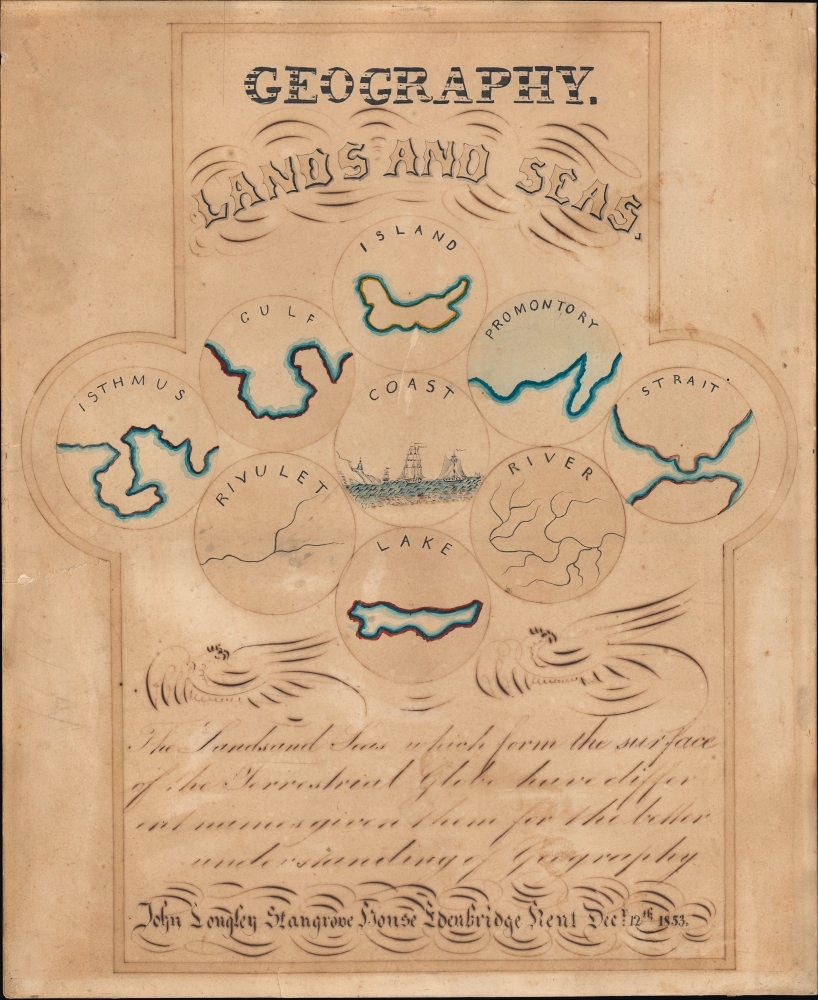 GEOGRAPHY.
LANDS AND SEAS.
ISLAND
GULF
PROMONTORY
ISTHMUS
COAST
STRAIT
RIVULET
RIVER
LAKE
The Landsand Seas which form the surface
of the Terrestrial Globe have differ
ent names given them for the better
understanding of Geography
John Longley Stangrove House Edenbridge Kent Decr. 12th 1853.